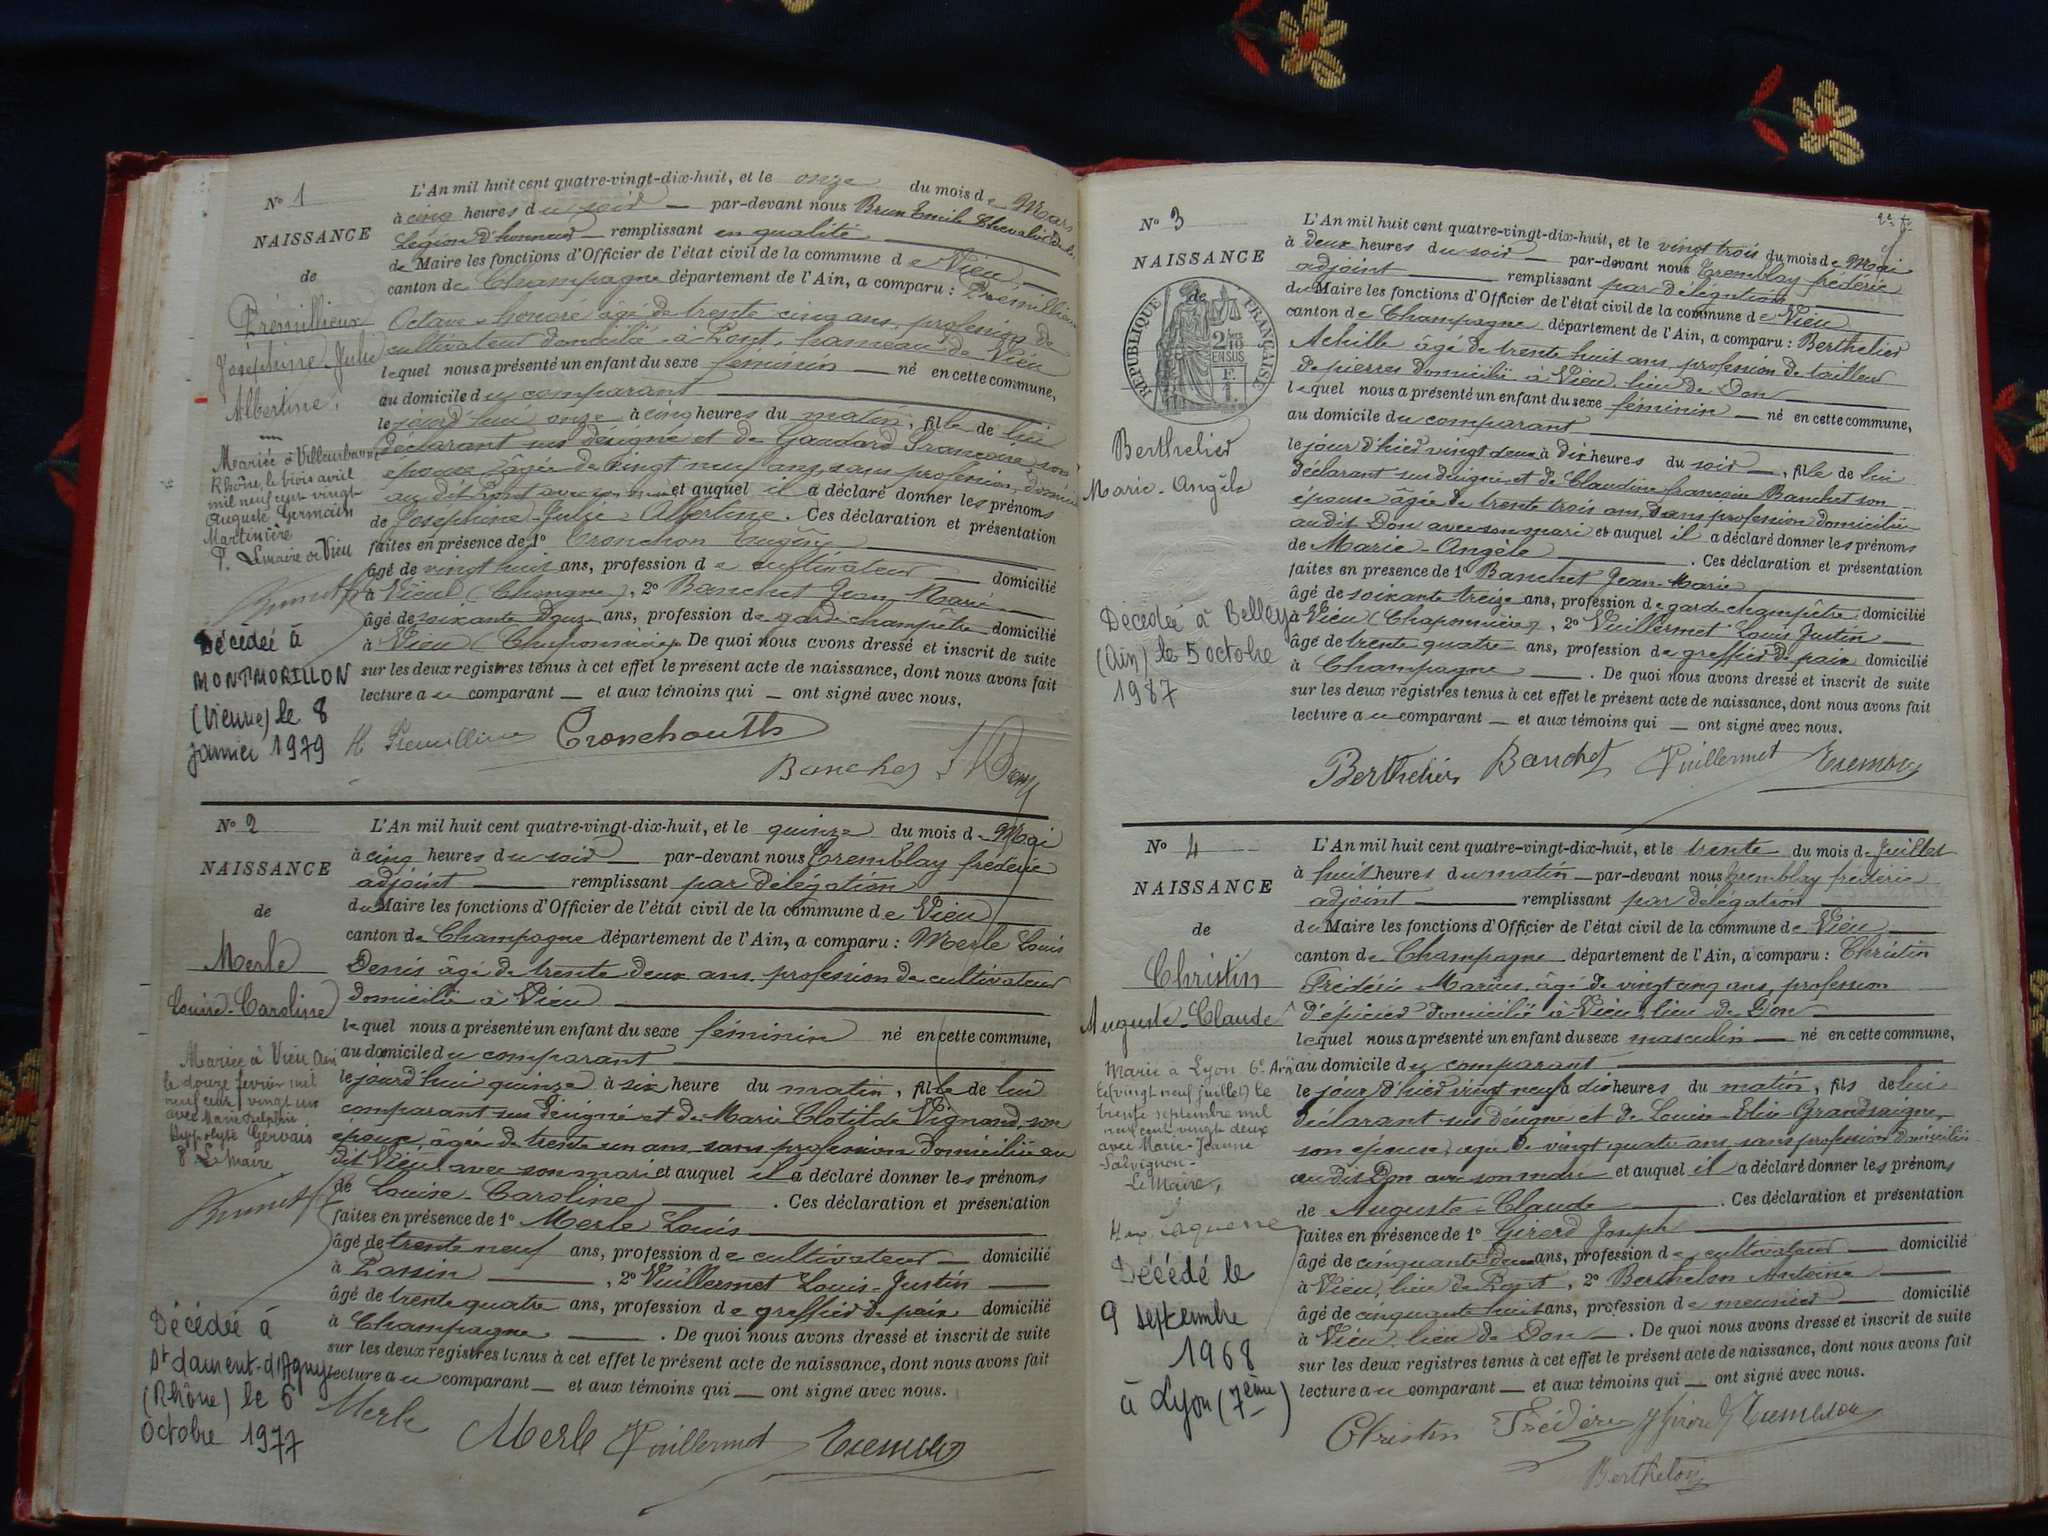 N° 1
NAISSANCE
de
Prémillieux
Joséphine Julie
Albertine.
Mariée à Villeurbanne
Rhône, le trois avril
mil neuf cent vingt
Auguste Germain
Martinière
P. Le maire de Vieu
Décédée à
MONTMORILLON
(Vienne) le 8
janvier 1979
L'An mil huit cent quatre-vingt-dix-huit, et le onze du mois de Mars
à cinq heures du soir — par-devant nous Brun Emile Chevalier de la
Légion d'honneur — remplissant en qualité
de Maire les fonctions d'Officier de l'état civil de la commune de Vieu,
canton de Champagne département de l'Ain, a comparu : Prémillieux
Octave honoré âgé de trente cinq ans, profession de
cultivateur domicilié à Pont, hameau de Vieu
lequel nous a présenté un enfant du sexe féminin — né en cette commune,
au domicile du comparant
le jourd'hui onze à cinq heures du matin, fille de lui
déclarant sus désigné et de Gaudard Françoise, son
épouse âgée de vingt neuf ans, sans profession, domiciliée
au dit Pont avec son mari et auquel il a déclaré donner les prénoms
de Joséphine Julie Albertine. Ces déclaration et présentation
faites en présence de 1° Tronchon Eugène
âgé de vingt huit ans, profession de cultivateur — domicilié
à Vieu (Chongne), 2° Banchet Jean Marie
âgé de soixante Douze ans, profession de garde champêtre domicilié
à Vieu (Chaponnière). De quoi nous avons dressé et inscrit de suite
sur les deux registres tenus à cet effet le présent acte de naissance, dont nous avons fait
lecture au comparant — et aux témoins qui — ont signé avec nous.
H Premillieux
Banchet
N° 2
NAISSANCE
de
Merle
Louise-Caroline
Mariée à Vieu Ain
le douze février mil
neuf cent vingt un
avec Marie Delphin
Hyppolyte Gervais
P. Le Maire
Décédée à
St Laurent-d'Agny
(Rhône) le 6
octobre 1977
L'An mil huit cent quatre-vingt-dix-huit, et le quinze du mois de Mai
à cinq heures du soir — par-devant nous Tremblay fréderic
adjoint — remplissant par délégation
du Maire les fonctions d'Officier de l'état civil de la commune de Vieu
canton de Champagne département de l'Ain, a comparu : Merle Louis
Denis âgé de trente deux ans profession de cultivateur
domicilié à Vieu
lequel nous a présenté un enfant du sexe féminin né en cette commune,
au domicile du comparant
le jourd'hui quinze à six heure du matin, fille de lui
comparant sus désigné et de Marie Clotilde Vignand, son
épouse, âgée de trente un ans sans profession domiciliée au
dit Vieu avec son mari et auquel il a déclaré donner les prénoms
de Louise-Caroline — . Ces déclaration et présentation
faites en présence de 1° Merle Louis
âgé de trente neuf ans, profession de cultivateur — domicilié
à Passin — , 2° Vuillermet Louis-Justin
âgé de trente quatre ans, profession de greffier de paix domicilié
à Champagne — . De quoi nous avons dressé et inscrit de suite
sur les deux registres tenus à cet effet le présent acte de naissance, dont nous avons fait
lecture au comparant — et aux témoins qui — ont signé avec nous.
Merle
Merle Vuillermet Tremblay
N° 3
NAISSANCE
de
RÉPUBLIQUE FRANÇAISE
2/10 EN SUS
Berthelier
Marie-Angèle
Décédée à Belley
(Ain) le 5 octobre
1987
L'An mil huit cent quatre-vingt-dix-huit, et le vingt trois du mois de Mai
à deux heures du soir — par-devant nous Tremblay fréderic
adjoint — remplissant par délégation
du Maire les fonctions d'Officier de l'état civil de la commune de Vieu
canton de Champagne département de l'Ain, a comparu : Berthelier
Achille âgé de trente huit ans, profession de tailleur
de pierres domicilié à Vieu, lieu de Don
lequel nous a présenté un enfant du sexe féminin — né en cette commune,
au domicile du comparant
le jour d'hier vingt deux à dix heures du soir — , fille de lui
déclarant sus désigné et de Claudine françoise Banchet son
épouse âgée de trente trois ans, sans profession domiciliée
au dit Don avec son mari et auquel il a déclaré donner les prénoms
de Marie-Angèle — . Ces déclaration et présentation
faites en présence de 1° Banchet Jean-Marie
âgé de soixante treize ans, profession de garde champêtre domicilié
à Vieu (Chaponnière), 2° Vuillermet Louis Justin
âgé de trente quatre ans, profession de greffier de paix domicilié
à Champagne — . De quoi nous avons dressé et inscrit de suite
sur les deux registres tenus à cet effet le présent acte de naissance, dont nous avons fait
lecture au comparant — et aux témoins qui — ont signé avec nous.
Berthelier Banchet Vuillermet Tremblay
N° 4
NAISSANCE
de
Christin
Auguste-Claude
Marié à Lyon 6e Arr
le (vingt neuf juillet) le
trente septembre mil
neuf cent vingt deux
avec Marie-Jeanne
Salvignon-
Le Maire,
Décédé le
9 septembre
1968
à Lyon (7ème)
L'An mil huit cent quatre-vingt-dix-huit, et le trente du mois de Juillet
à huit heures du matin — par-devant nous Tremblay fréderic
adjoint — remplissant par délégation
du Maire les fonctions d'Officier de l'état civil de la commune de Vieu
canton de Champagne département de l'Ain, a comparu : Christin
Frédéric Marius, âgé de vingt cinq ans, profession
d'épicier domicilié à Vieu, lieu de Don
lequel nous a présenté un enfant du sexe masculin — né en cette commune,
au domicile du comparant
le jour d'hier vingt neuf à dix heures du matin, fils de lui
déclarant sus désigné et de Louise Elise Grandsaigne,
son épouse, âgée de vingt quatre ans, sans profession domiciliée
au dit Don avec son mari et auquel il a déclaré donner les prénoms
de Auguste-Claude — . Ces déclaration et présentation
faites en présence de 1° Girerd Joseph
âgé de cinquante deux ans, profession de cultivateur — domicilié
à Vieu, lieu de Pont, 2° Berthelon Antoine
âgé de cinquante huit ans, profession de meunier — domicilié
à Vieu, lieu de Don — . De quoi nous avons dressé et inscrit de suite
sur les deux registres tenus à cet effet le présent acte de naissance, dont nous avons fait
lecture au comparant — et aux témoins qui — ont signé avec nous.
Christin Frédéric J Girerd Tremblay
Berthelon